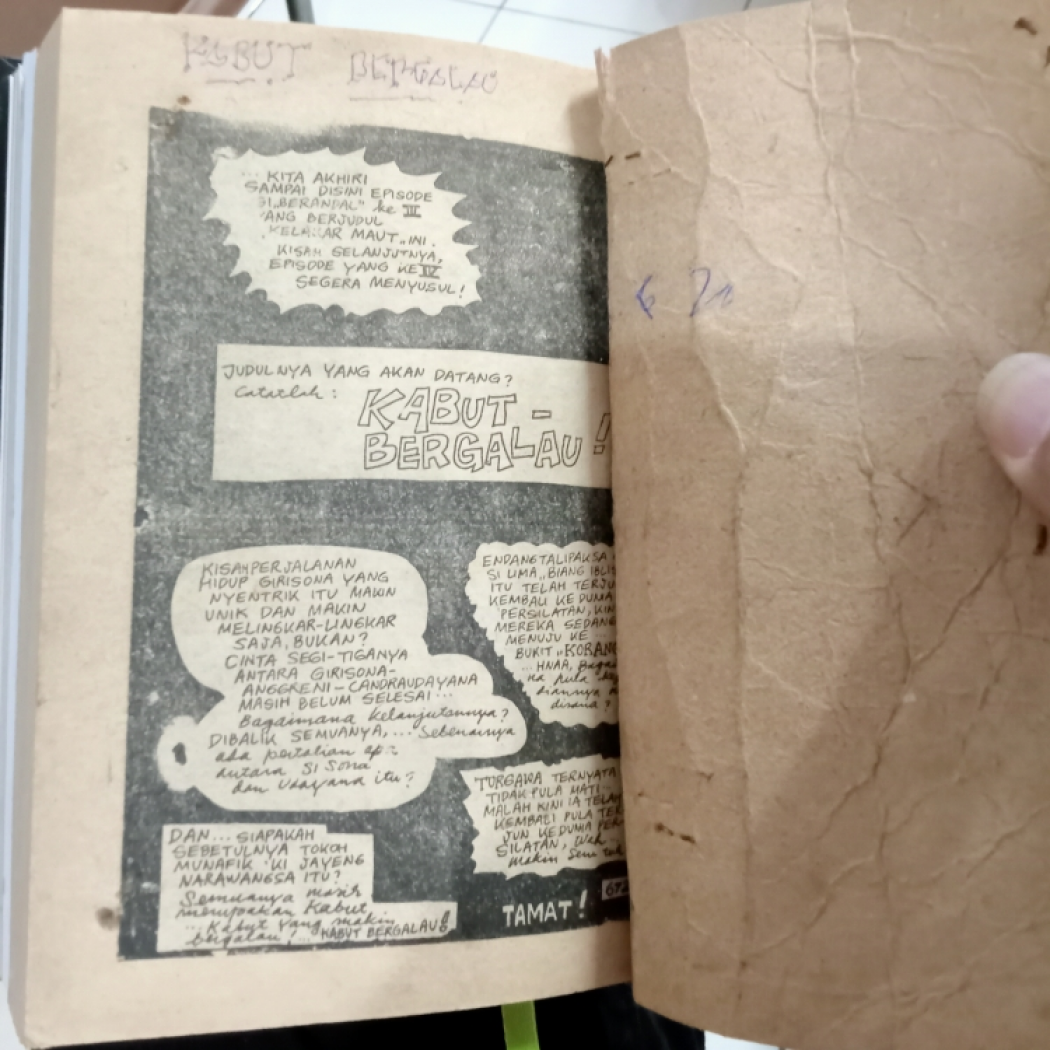 KABUT BERGALAU
... KITA AKHIRI
SAMPAI DISINI EPISODE
SI„BERANDAL" ke III
YANG BERJUDUL
„KELAKAR MAUT„ INI.
KISAH SELANJUTNYA,
EPISODE YANG KE IV
SEGERA MENYUSUL!
JUDULNYA YANG AKAN DATANG?
Catatlah :
KABUT -
BERGALAU !
KISAH PERJALANAN
HIDUP GIRISONA YANG
NYENTRIK ITU MAKIN
UNIK DAN MAKIN
MELINGKAR-LINGKAR
SAJA, BUKAN?
CINTA SEGI-TIGANYA
ANTARA GIRISONA-
ANGGRENI-CANDRAUDAYANA
MASIH BELUM SELESAI...
Bagaimana kelanjutannya?
DIBALIK SEMUANYA,... Sebenarnya
ada pertalian ap:
antara Si Sona
dan Udayana itu?
ENDANGTALIPAKSA
SI LIMA „BIANG IBLIS
ITU TELAH TERJU
KEMBALI KE DUNIA
PERSILATAN, KIN
MEREKA SEDANG
MENUJU KE ...
BUKIT „KORANG
... HNAA, Bagai
na pula
disana ?
TORGAWA TERNYATA
TIDAK PULA MATI...
MALAH KINI IA TELAH
KEMBALI PULA TER
JUN KEDUNIA PER
SILATAN, Wah...
makin Seru
DAN... SIAPAKAH
SEBETULNYA TOKOH
MUNAFIK 'KI JAYENG
NARAWANGSA ITU?
Semuanya masih
merupakan Kabut
... Kabut yang makin
bergalau!... KABUT BERGALAU!
TAMAT!